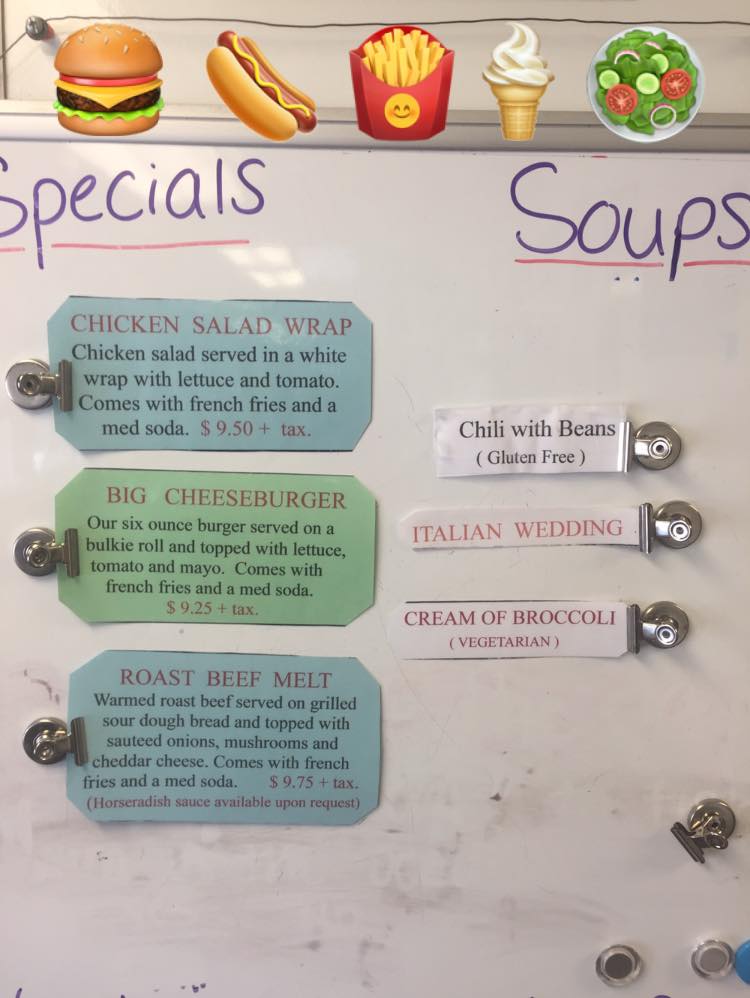 Specials
CHICKEN SALAD WRAP
Chicken salad served in a white
wrap with lettuce and tomato.
Comes with french fries and a
med soda. $ 9.50 + tax.
BIG CHEESEBURGER
Our six ounce burger served on a
bulkie roll and topped with lettuce,
tomato and mayo. Comes with
french fries and a med soda.
$ 9.25 + tax.
ROAST BEEF MELT
Warmed roast beef served on grilled
sour dough bread and topped with
sauteed onions, mushrooms and
cheddar cheese. Comes with french
fries and a med soda. $ 9.75 + tax.
(Horseradish sauce available upon request)
Soups
Chili with Beans
( Gluten Free )
ITALIAN WEDDING
CREAM OF BROCCOLI
( VEGETARIAN )